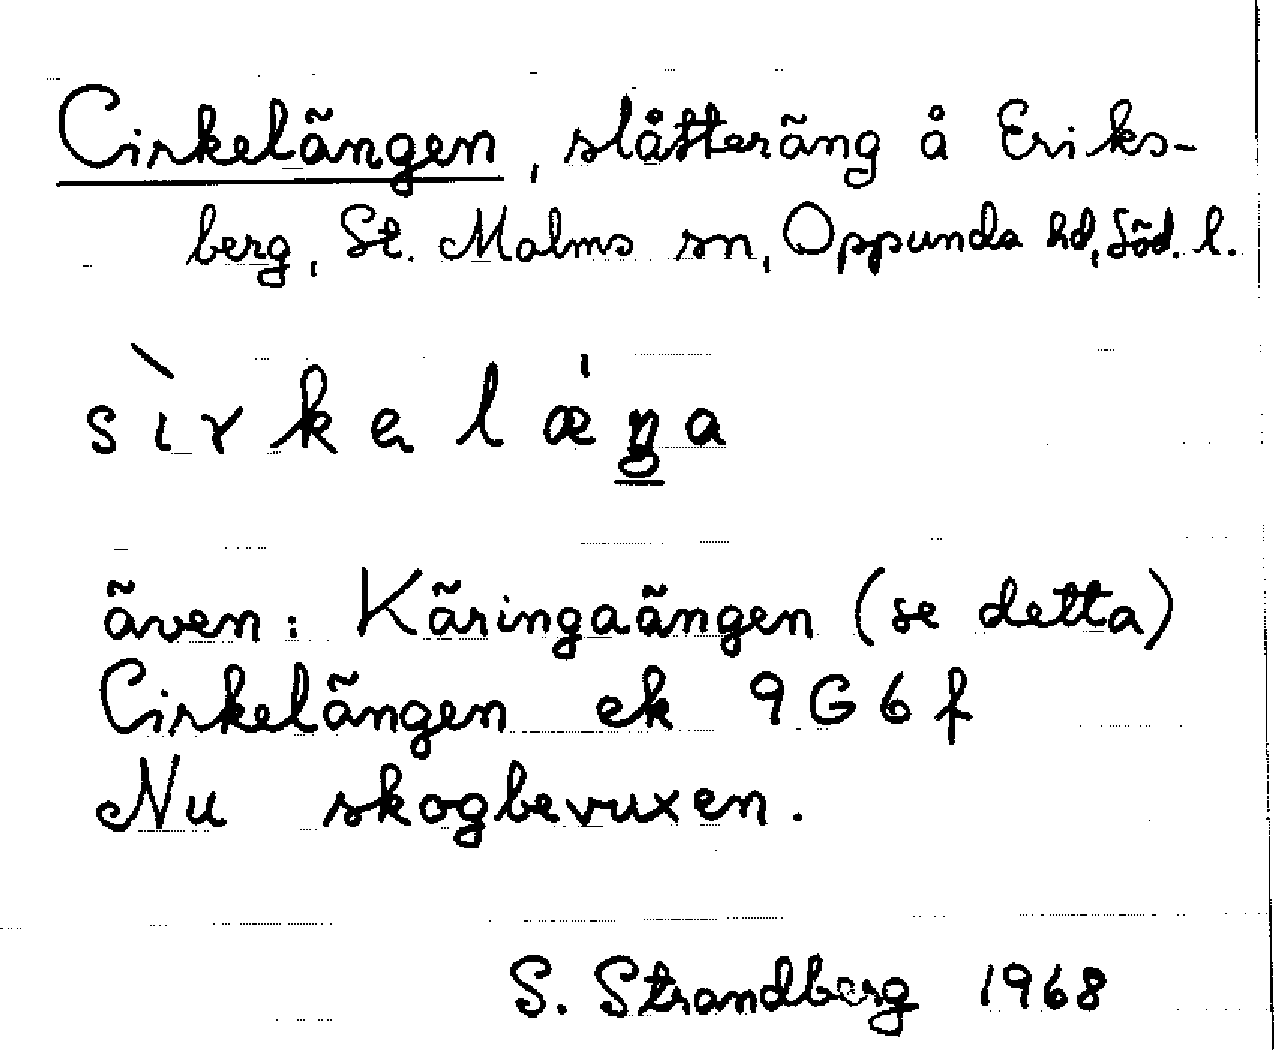 Cirkelängen, slåtteräng å Eriks-
berg, St. Malms sn, Oppunda hd, Söd. l.
sìrkelæ'ŋa
även: Käringaängen (se detta)
Cirkelängen ek 9G6f
Nu skogbevuxen.
S. Strandberg 1968